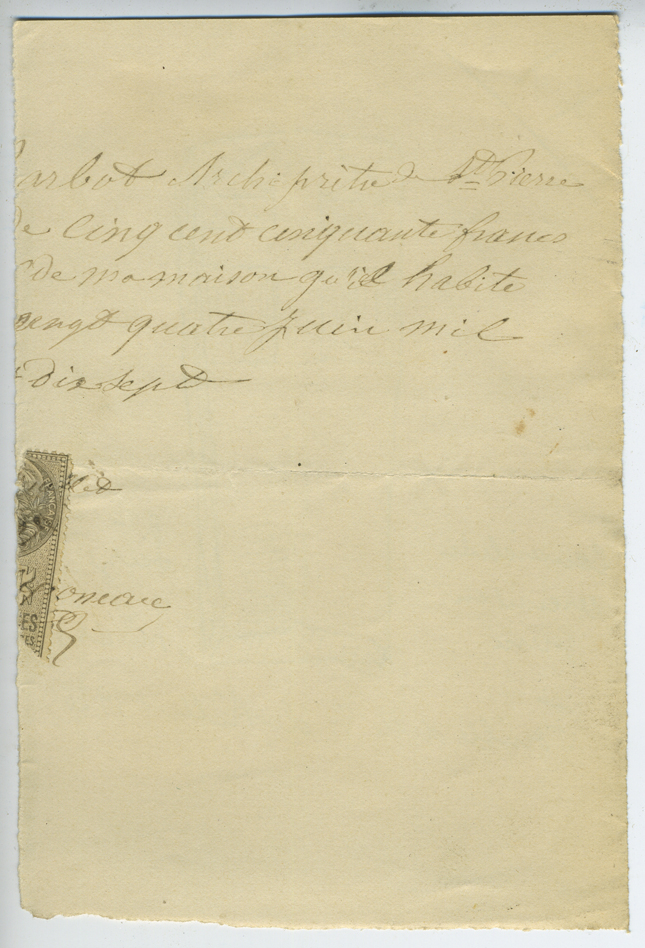 arbot Archiprêtre de St Pierre
de Cinq cent cinquante francs
de ma maison qu'il habite
vengt quatre juin mil
dix sept
juillet
ANÇA
oneau
ES